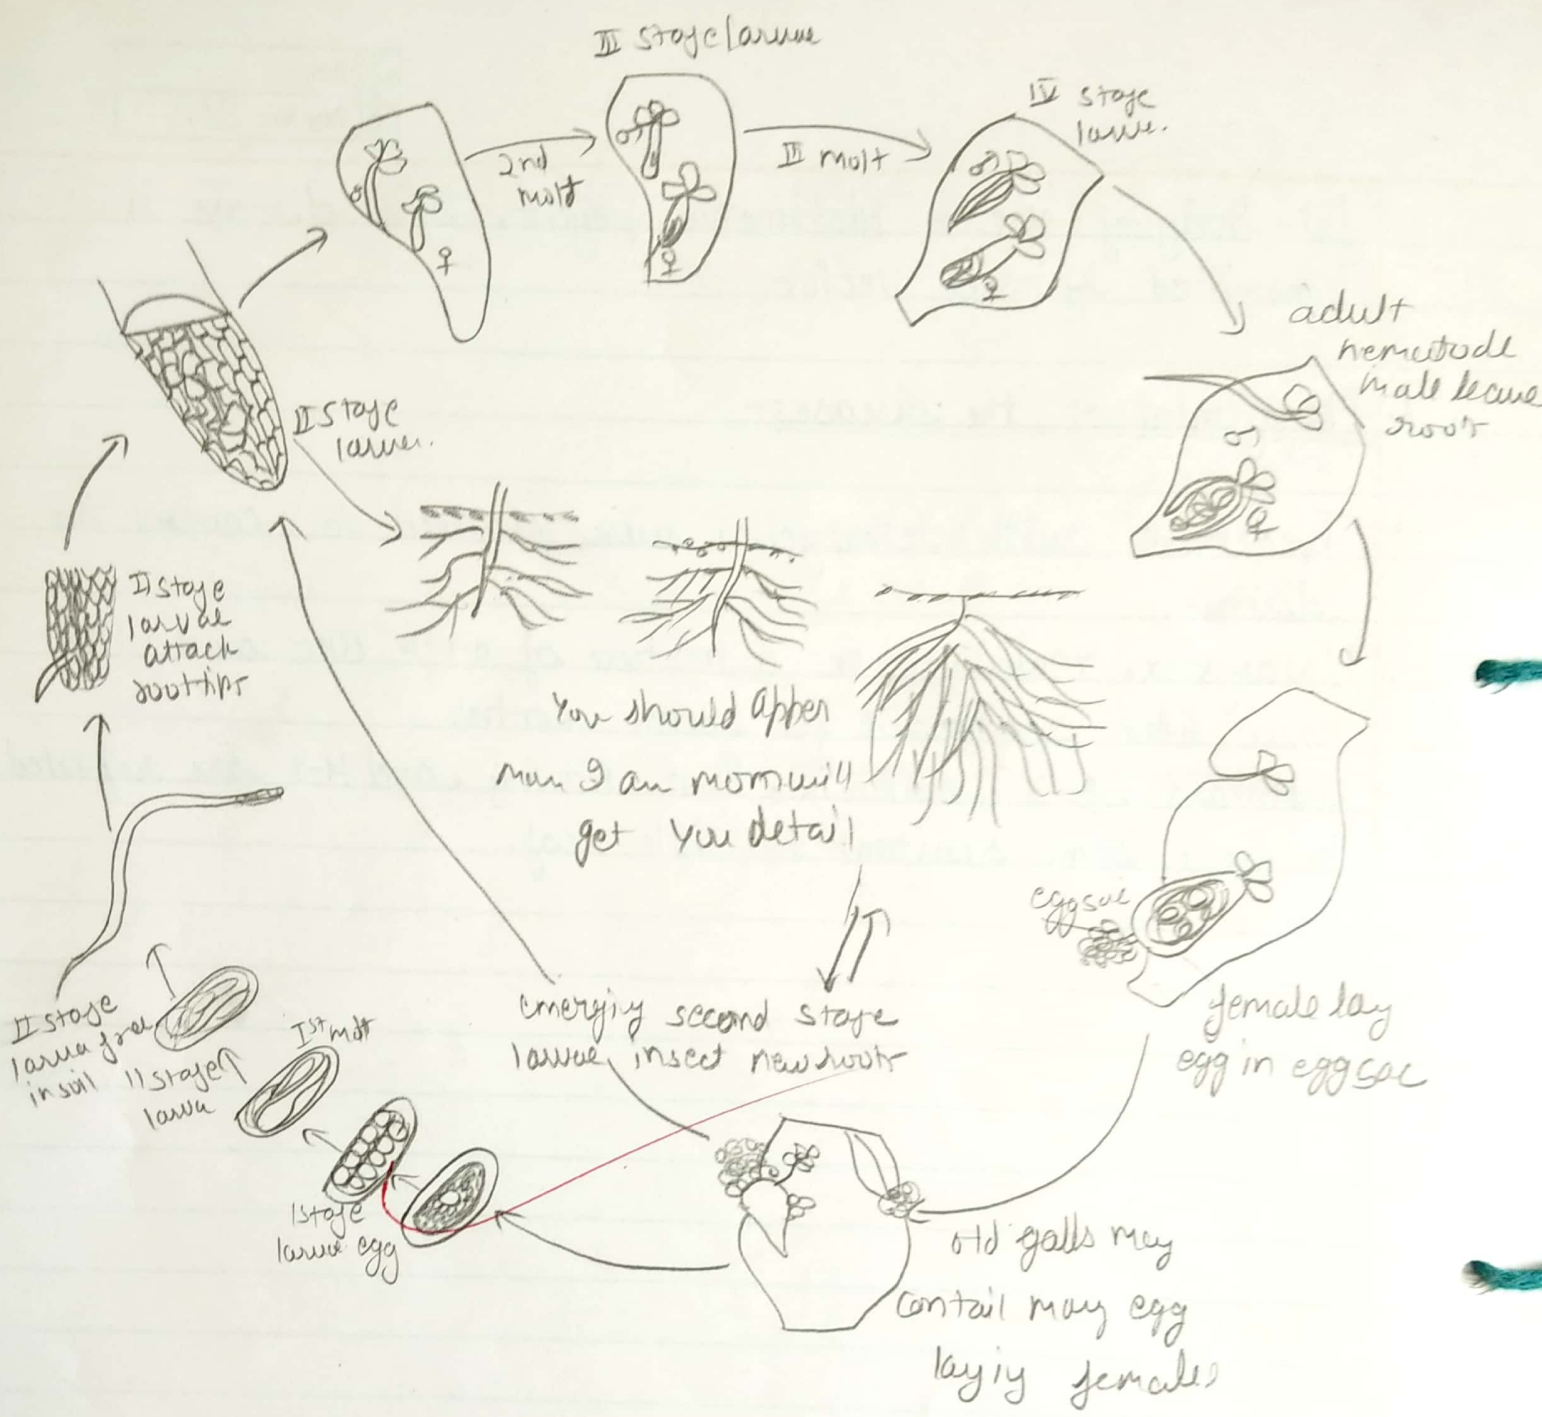 III stage larvae
2nd
molt
III molt
IV stage
larve.
adult
nematode
male leave
root
II stage
larve.
II stage
larval
attach
root tips
You should
get you detail
eggsac
female lay
egg in eggsac
emergiy second stage
larvae, insect new roots
II stage
larva free
in soil
II stage
larva
Ist molt
I stage
larve egg
old galls may
contail may egg
layiy females